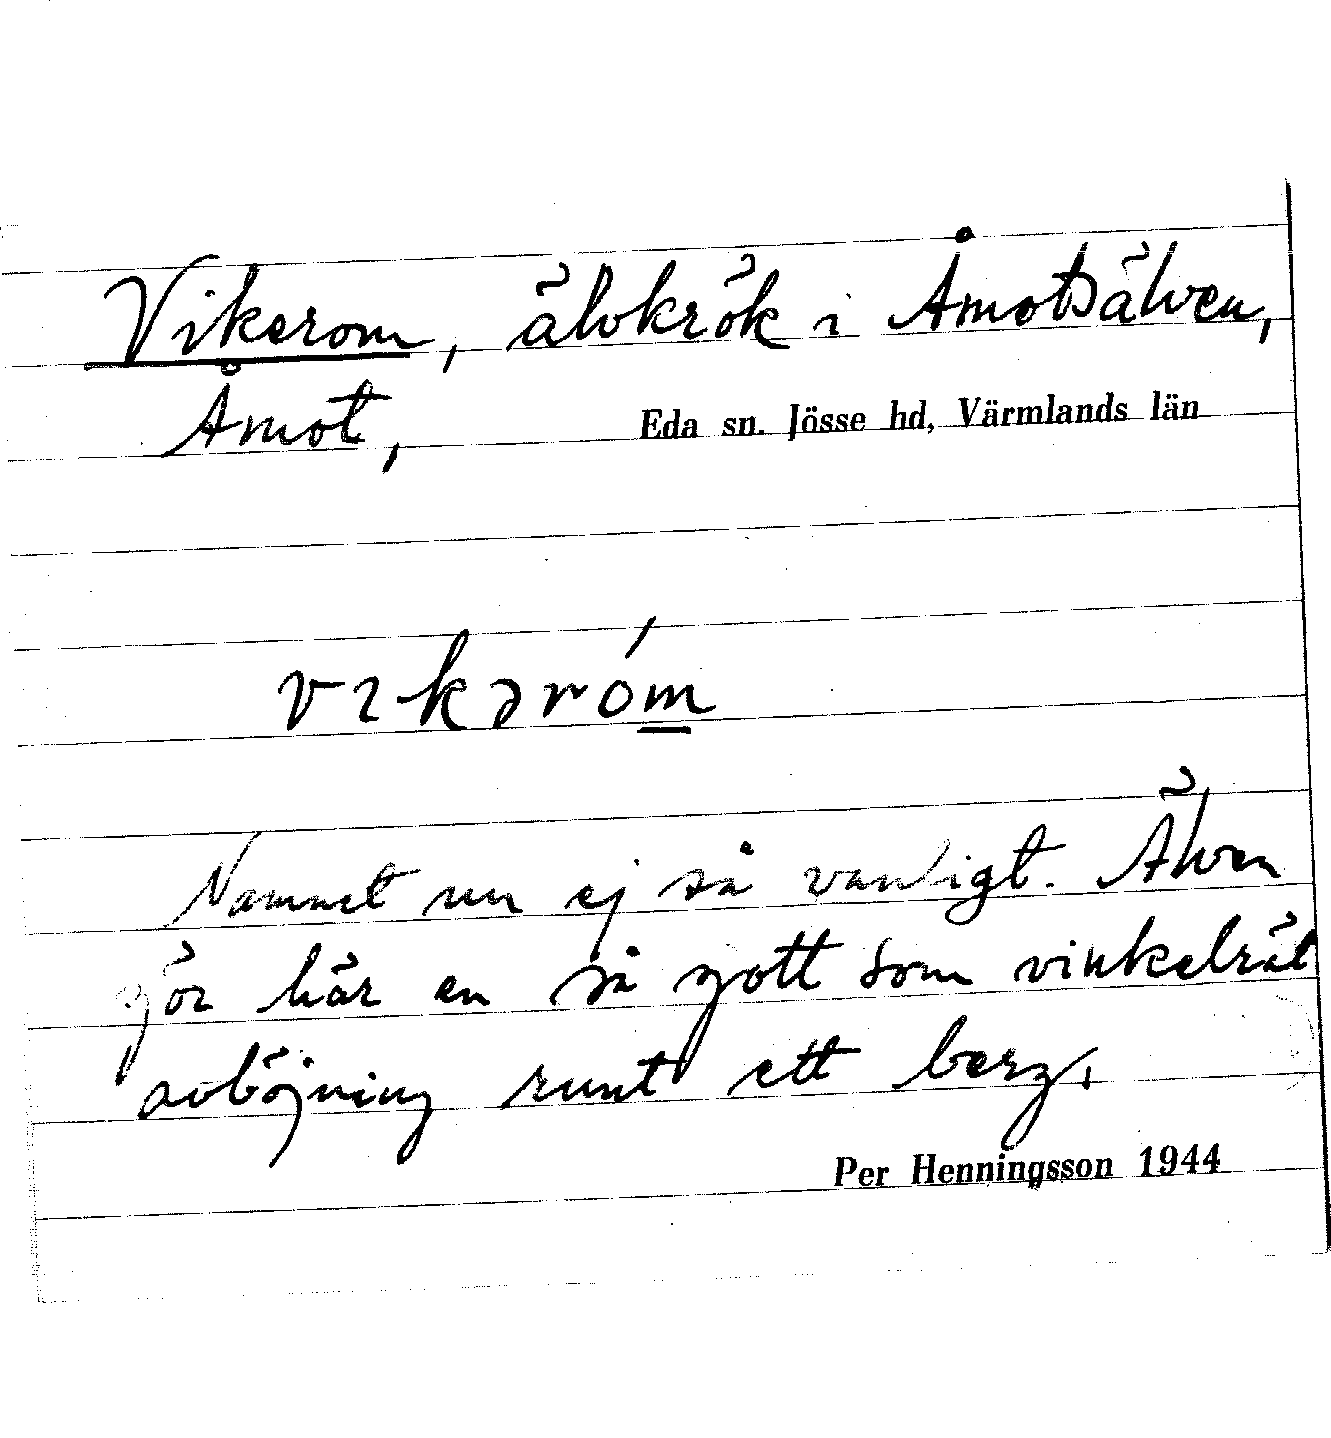 Vikerom, älvkrök i Åmotsälven,
Åmot, Eda sn. Jösse hd, Värmlands län
vɪkəróm̲
Namnet nu ej så vanligt. Älven
gör här en så gott som vinkelrät
avböjning runt ett berg.
Per Henningsson 1944